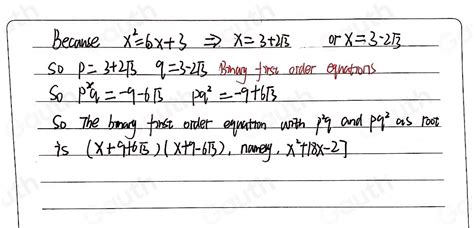 Because x²=6x+3 ⇒ x=3+2√3 or x=3-2√3
So p=3+2√3 q=3-2√3 Binary first order equations
So p²q=-9-6√3 pq²=-9+6√3
So The binary first order equation with p²q and pq² as root
is (x+9+6√3)(x+9-6√3), namely, x²+18x-27